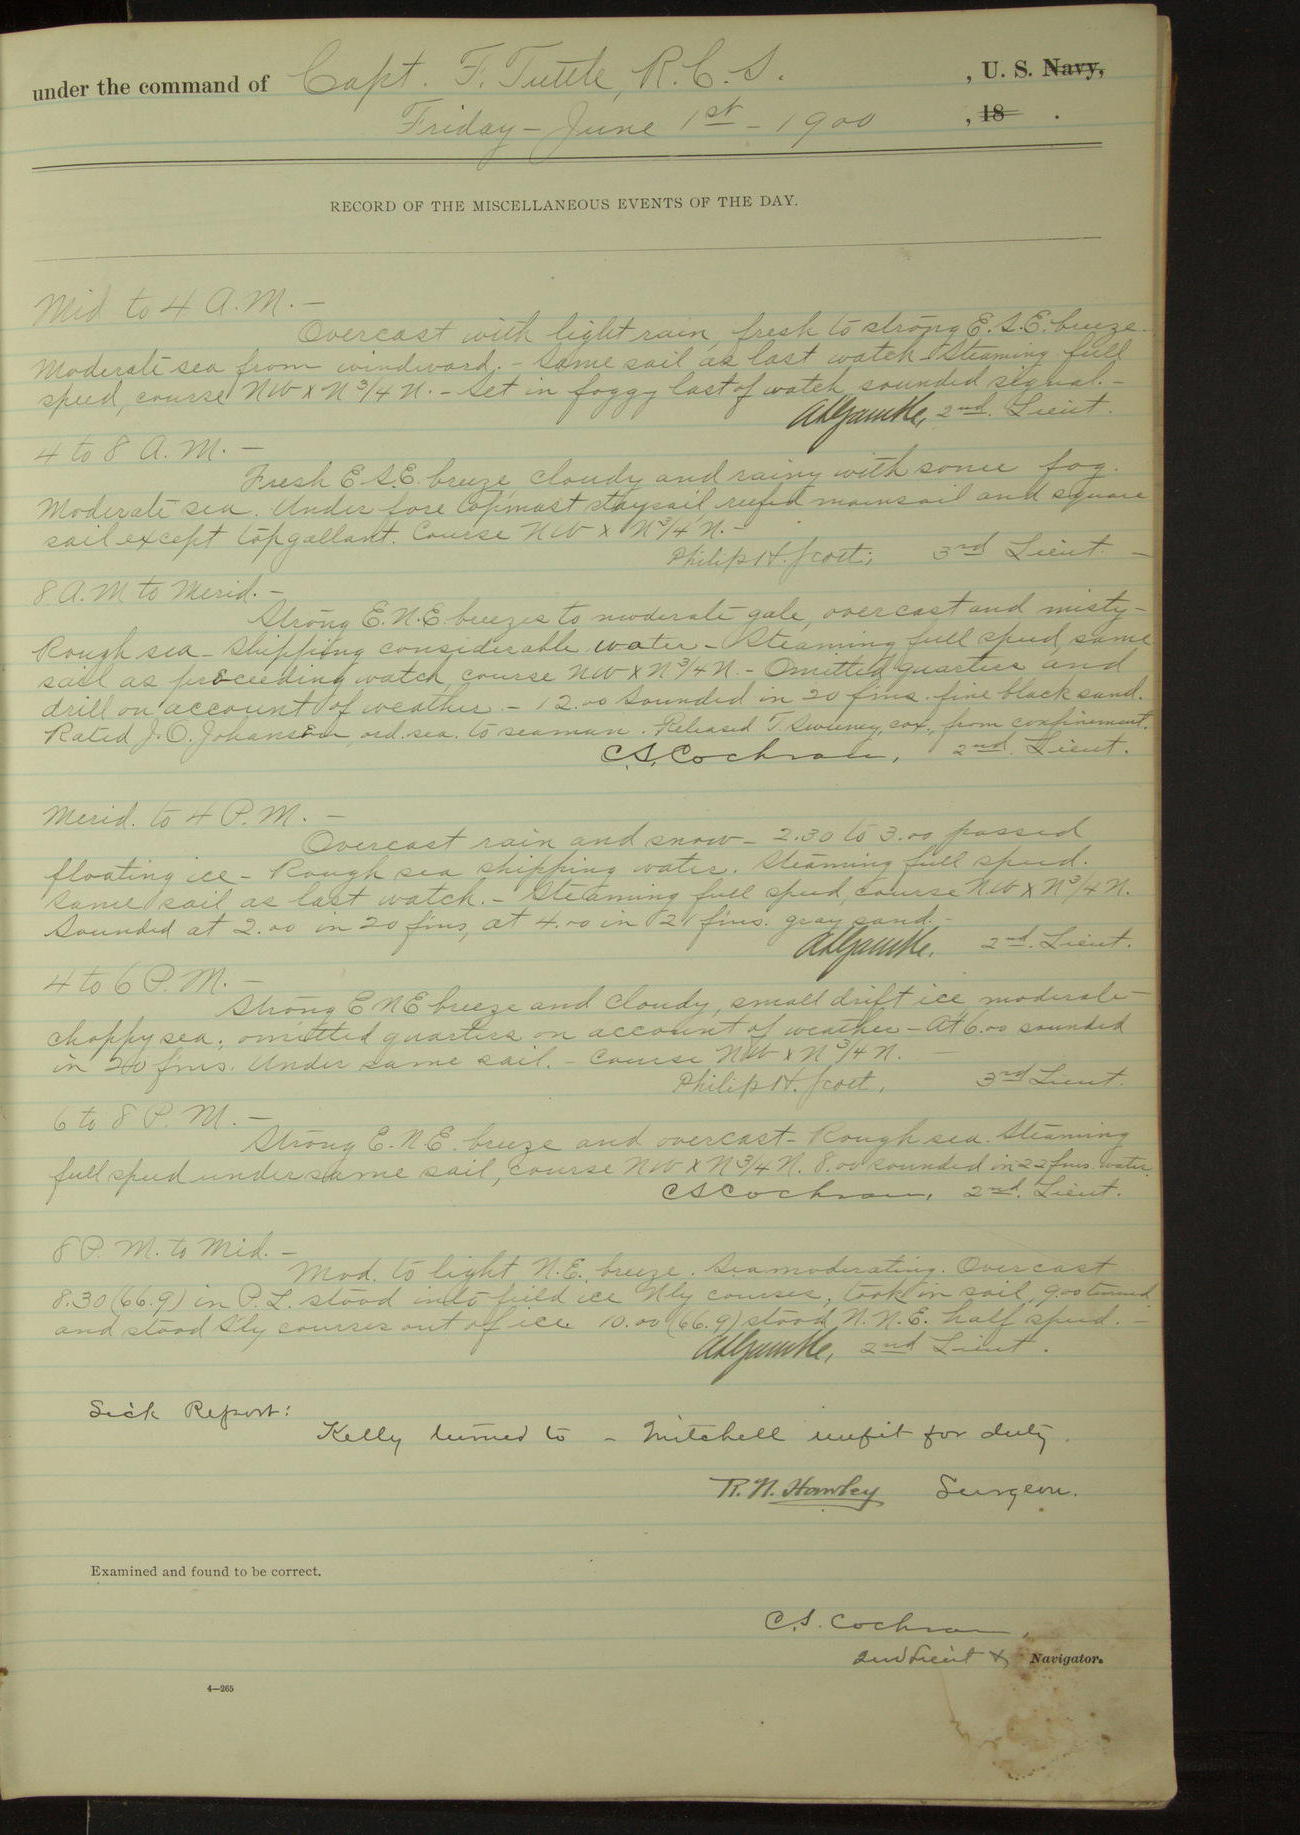 under the command of Capt. F. Tuttle, R.C.S. , U. S. Navy,
Friday – June 1st – 1900 , 18 .
RECORD OF THE MISCELLANEOUS EVENTS OF THE DAY.
Mid to 4 A.M. –
Overcast with light rain, fresh to strong E.S.E. breeze.
Moderate sea from windward. – Same sail as last watch – Steaming full
speed, course NW x N 3/4 N. – Set in foggy last of watch, sounded signal. –
2nd. Lieut.
4 to 8 A.M. –
Fresh E.S.E. breeze, cloudy and rainy with some fog.
Moderate sea. Under fore topmast staysail reefed mainsail and square
sail except topgallant. Course NW x N 3/4 N. –
Philip H. Scott, 3rd Lieut. –
8 A.M to Merid. –
Strong E.N.E. breezes to moderate gale, overcast and misty –
Rough sea – Shipping considerable water – Steaming full speed, same
sail as preceeding watch, course NW x N 3/4 N. – Omitted quarters and
drill on account of weather. – 12.00 Sounded in 20 fms. fine black sand.
Rated J.O. Johansen, ord. sea. to seaman. Released T. Sweeney, cox., from confinement.
C.S. Cochran, 2nd. Lieut.
Merid. to 4 P.M. –
Overcast rain and snow – 2.30 to 3.00 passed
floating ice – Rough sea shipping water. Steaming full speed.
Same sail as last watch. – Steaming full speed, course NW x N 3/4 N.
Sounded at 2.00 in 20 fms, at 4.00 in 21 fms. gray sand. –
2nd. Lieut.
4 to 6 P.M. –
Strong E N E breeze and cloudy, small drift ice moderate
choppy sea; omitted quarters on account of weather – At 6.00 sounded
in 20 fms. Under same sail. – Course NW x N 3/4 N. –
Philip H. Scott, 3rd Lieut.
6 to 8 P.M. –
Strong E.N.E. breeze and overcast – Rough sea. Steaming
full speed under same sail, course NW x N 3/4 N. 8.00 sounded in 22 fms. water.
C S Cochran, 2nd. Lieut.
8 P.M. to Mid. –
Mod. to light N.E. breeze. Sea moderating. Overcast
8.30 (66.9) in P.L. stood into field ice N'ly courses, took in sail, 9.00 turned
and stood S'ly courses out of ice 10.00 (66.9) stood N.N.E. half speed. –
2nd Lieut.
Sick Report:
Kelly turned to – Mitchell unfit for duty.
R. N. Hawley Surgeon.
Examined and found to be correct.
C.S. Cochran,
2nd Lieut & Navigator.
4—265